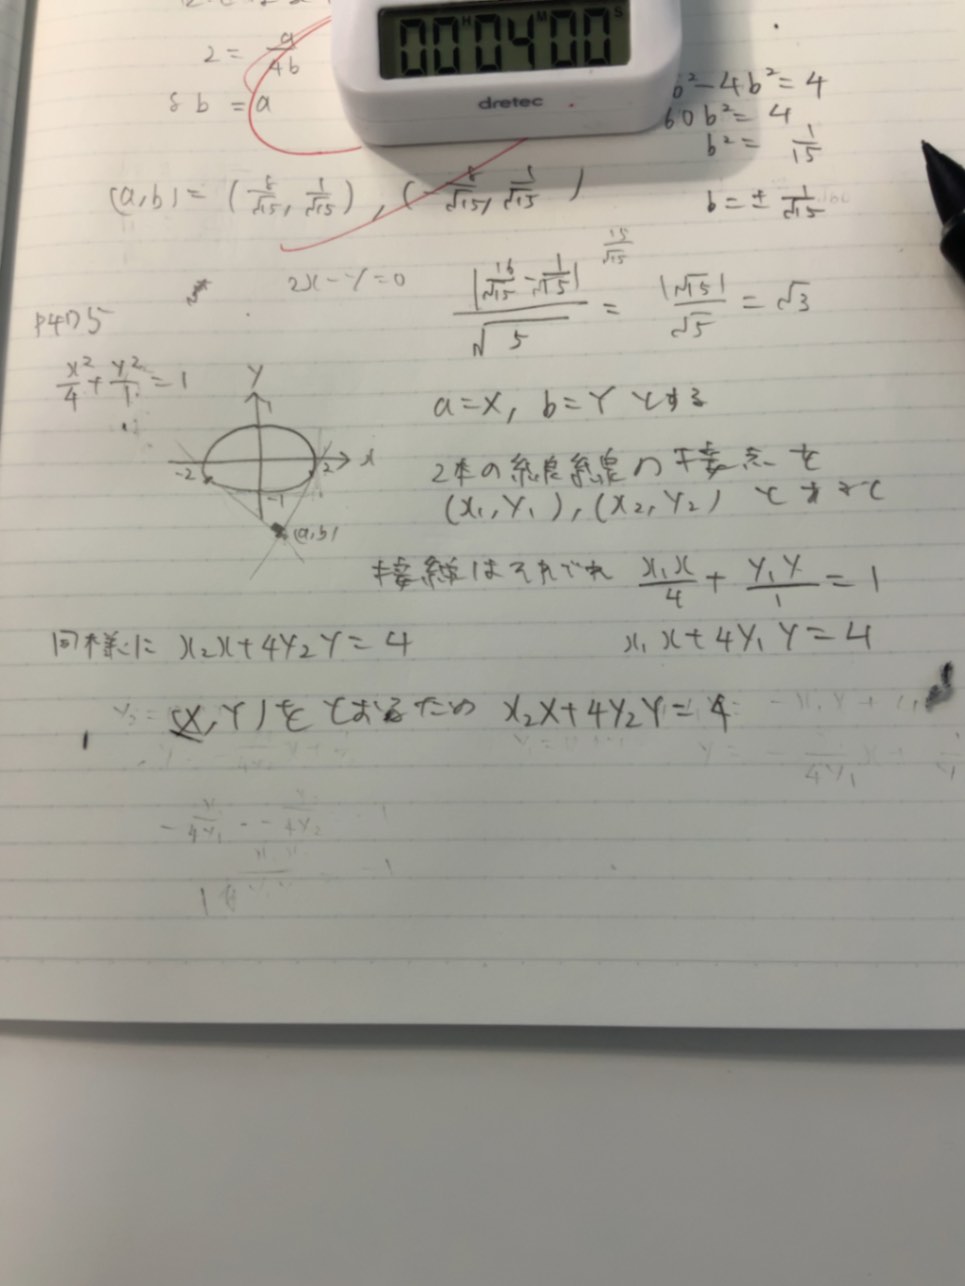 2 = a/4b
8b = a
00H04M00S
dretec
b²-4b²=4
60b²=4
b²= 1/15
b=± 1/√15
(a,b)= (8/√15, 1/√15), (-8/√15, 1/√15)
2x-y=0
|16/√15 - 1/√15|/√5 = |√15|/√5 = √3
15/√15
P475
x²/4+y²/1=1
Y
1
-2
2
x
-1
(a,b)
a=X, b=Y とする
2本の接線の接点を
(x₁,y₁),(x₂,y₂) とすると
接線はそれぞれ x₁x/4 + y₁y/1 = 1
x₁x+4y₁y=4
同様に x₂x+4y₂y=4
(X,Y)をとおるため x₂X+4y₂Y=4